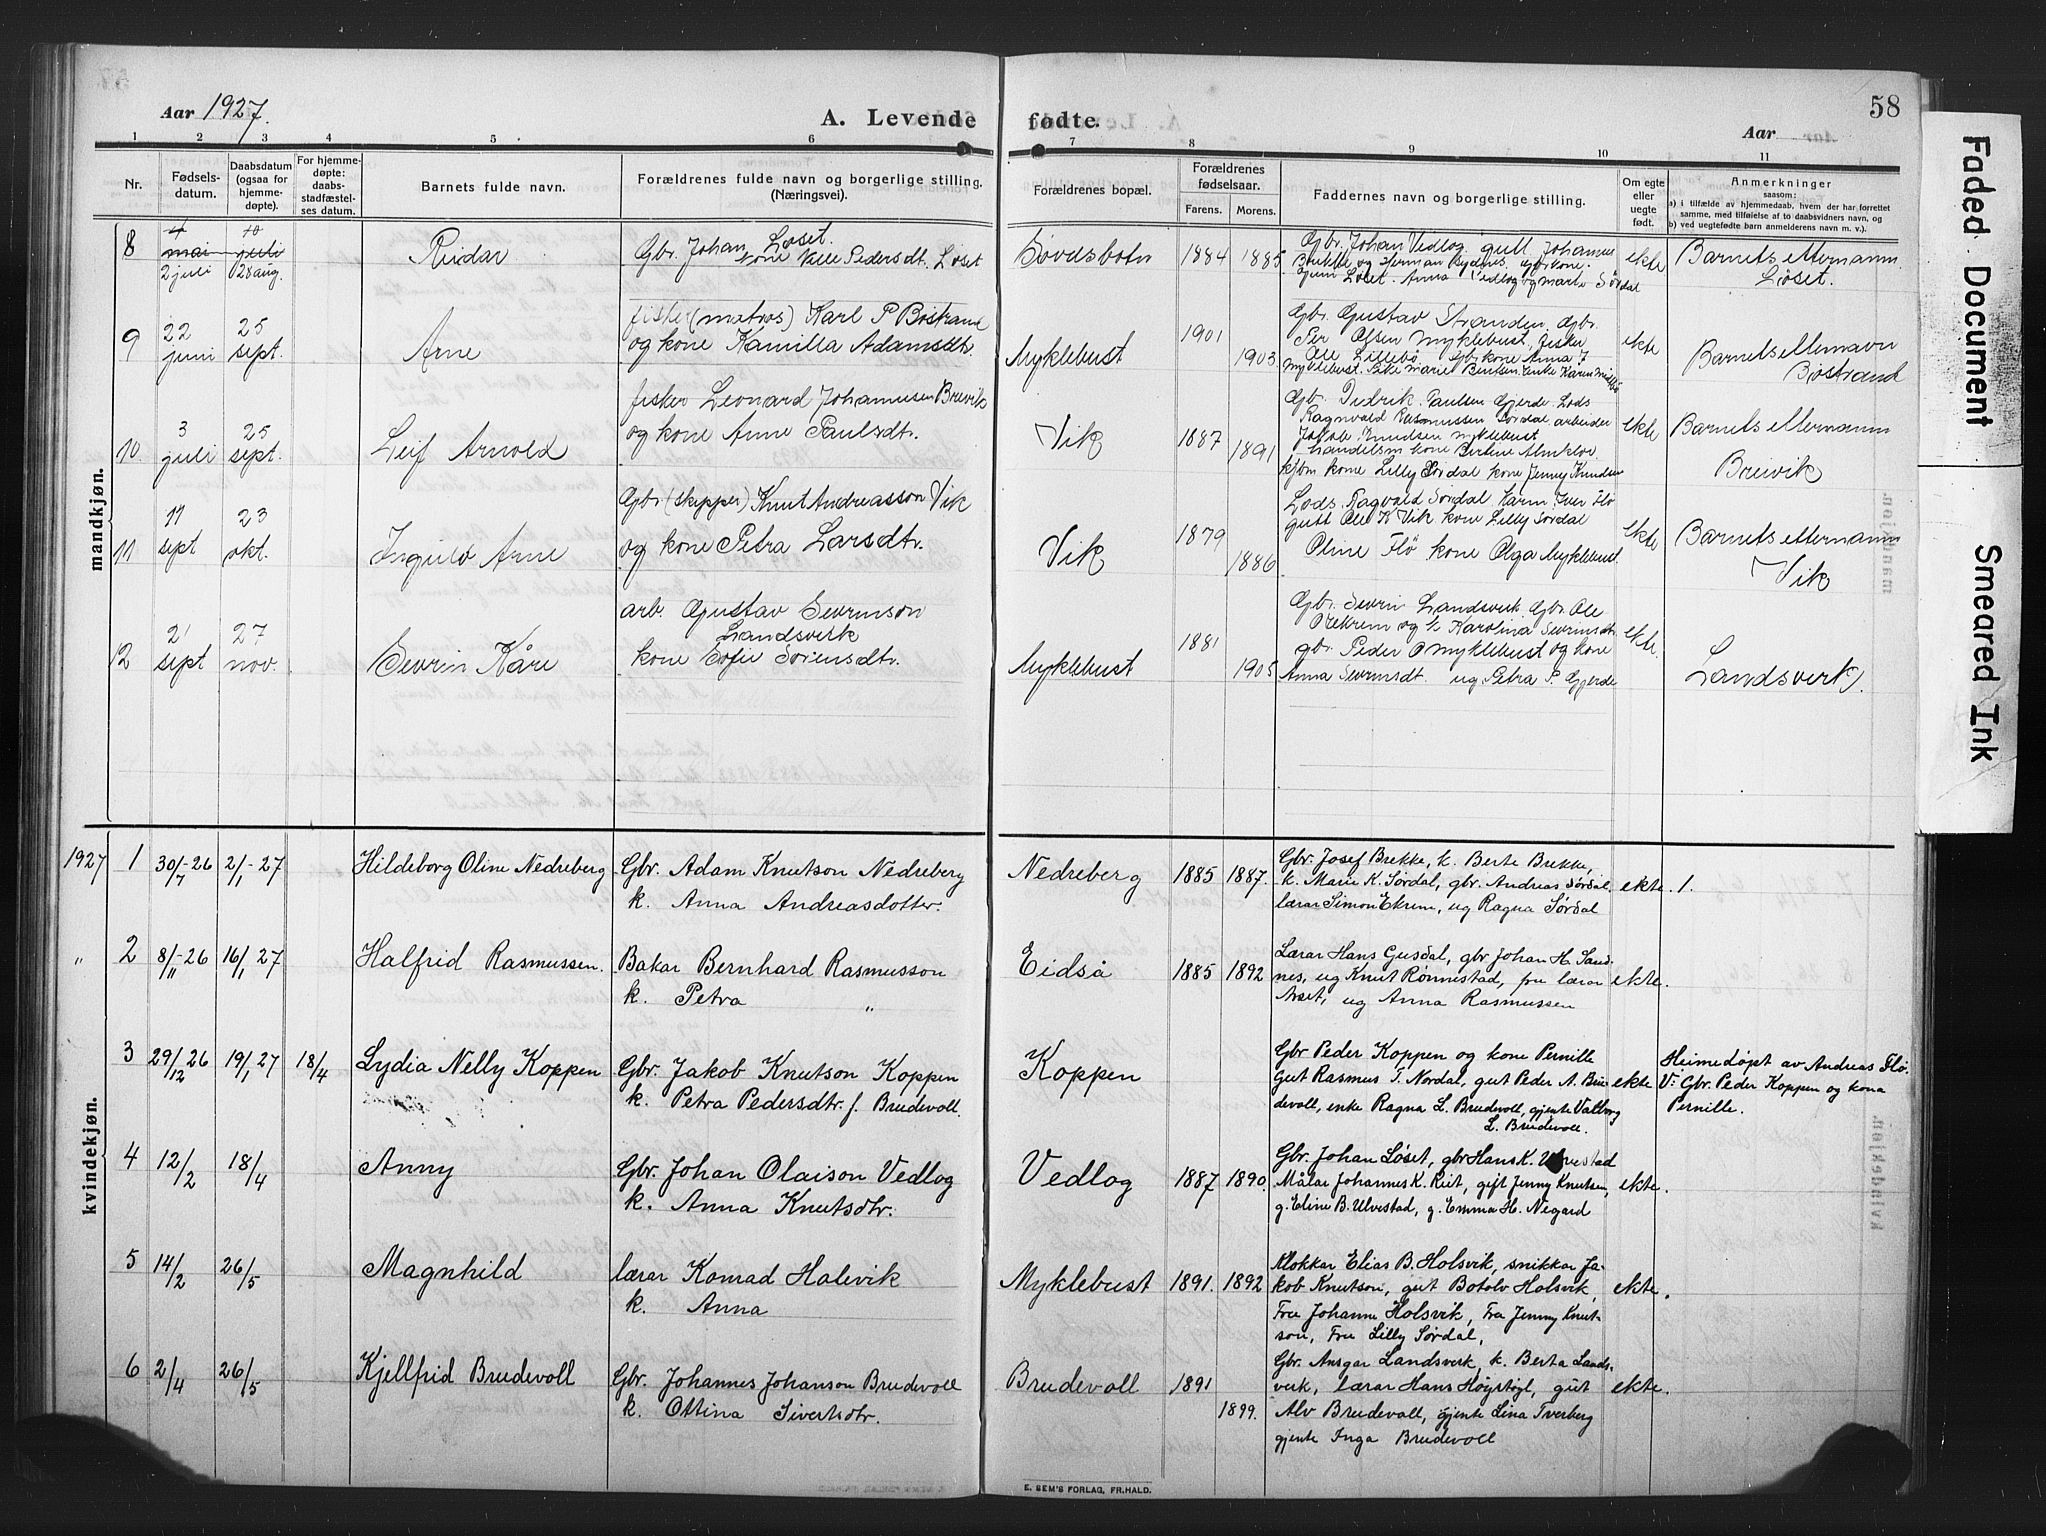 Aar 1927.
A. Levende
fødte.
Aar
58
1 2 3 4 5 6 7 8 9 10 11
Nr.
Fødsels-
datum.
Daabsdatum
(ogsaa for
hjemme-
døpte).
For hjemme-
døpte:
daabs-
stadfæstel-
ses datum.
Barnets fulde navn.
Forældrenes fulde navn og borgerlige stilling.
(Næringsvei).
Forældrenes bopæl.
Forældrenes
fødselsaar.
Farens. Morens.
Faddernes navn og borgerlige stilling.
Om egte
eller
uegte
født.
Anmerkninger
saasom:
a) i tilfælde av hjemmedaab, hvem der har forrettet
samme, med tilføielse af to daabsvidners navn, og
b) ved uegtefødte barn anmelderens navn m. v.).
mandkjøn.
8
4 mai
2 juli
10 juli
28 aug.
Reidar
Gbr. Johan Løset.
kone Pedersdt. Løset
Søvdsbotn
1884 1885
Gbr. Johan Vedlog gutt Johannes
Brekke og Herman Bydnes, gbrkone.
Løset. Anna Vedlog og Marie Sørdal
ekte
Barnets etternamn
Løset.
9
22 juni
25 sept.
Arne
fisker (matros) Karl P Bøstrand
og kone Kamilla Adamsdtr.
Myklebust
1901 1903
Gbr. Gustav Stranden. Gbr.
Per Olsen Myklebust, fisker
Ole Lillebø Gbrkone Anna J
Myklebust. Pike Marie Bentsen. Enke Karen
ekte
Barnets etternavn
Bøstrand
10.
3 juli
25 sept.
Leif Arnold
fisker Leonard Johannesen Breivik
og kone Anne Paulsdtr.
Vik
1887 1891
Gbr. Didrik Paulsen Gjerde. Lods
Ragnvald Rasmussen Sørdal arbeider
Jakob Knudsen Myklebust
handelsm kone Bertine Almklov
kone Lilly Sørdal kone Jenny Knudsen
ekte
Barnets etternamn
Breivik
11
11 sept
23 okt.
Ingulv Arne
Gbr. (skipper) Knut Andreasson Vik
og kone Petra Larsdtr.
Vik
1879 1886
Lods Ragvald Sørdal Iver Flø
gutt Ole K Vik kone Lilly Sørdal
Oline Flø kone Olga Myklebust.
ekte
Barnets etternamn
Vik
12
21 sept
27 nov.
Sevrin Kåre
arb. Gustav Sevrinson
Landsverk
kone Sofie Sørensdtr.
Myklebust
1881 1905
Gbr. Sevrin Landsverk Gbr. Ole
Orekrem og k Karolina Sevrinsdt.
gbr. Peder O Myklebust og kone
Anna Sevrinsdt ug. Petra P. Gjerde
ekte.
Landsverk.
kvindekjøn.
1927 1
30/7-26 2/1-27
Hildeborg Oline Nedreberg
Gbr. Adam Knutson Nedreberg
k. Anna Andreasdotter.
Nedreberg
1885 1887.
Gbr. Josef Brekke, k. Berte Brekke,
k. Marie K. Sørdal, gbr. Andreas Sørdal,
lærar Simon Ekrem, ug Ragna Sørdal
ekte. 1.
" 2
8/11-26 16/1 27
Halfrid Rasmussen.
Bakar Bernhard Rasmusson
k. Petra "
Eidså
1885 1892
Lærar Hans Gusdal, gbr Johan H. Sand-
nes, ug Knut Rønnestad, fru lærar
Årset, ug Anna Rasmussen
ekte.
3
29/12 26 19/1 27 18/4
Lydia Nelly Koppen
Gbr. Jakob Knutson Koppen
k. Petra Pedersdtr f. Brudevoll.
Koppen
Gbr Peder Koppen og kone Pernille
Gut Rasmus T. Nordal, gut Peder A. Bru-
devoll, enke Ragna L. Brudevoll, gjente Valborg
L. Brudevoll.
ekte
Heimedøpt av Andreas Flø.
V. Gbr. Peder Koppen og kona
Pernille.
4
12/2 18/4
Anny
Gbr. Johan Olaison Vedlog
k. Anna Knutsdtr.
Vedlog
1887 1890.
Gbr. Johan Løset, gbr Hans K. Ulvestad
Målar Johannes K. Reit, gift Jenny Knutsen,
g. Eline B. Ulvestad, g. Emma H. Negard
ekte.
5
14/2 26/5
Magnhild
lærar Konrad Halsvik
k. Anna
Myklebust
1891. 1892
Klokkar Elias B. Holsvik, snikkar Ja-
kob Knutson, gut Botolv Holsvik,
Fru Johanne Holsvik, Fru Jenny Knut-
son, Fru Lilly Sørdal,
ekte.
6
2/4 26/5
Kjellfrid Brudevoll
Gbr. Johannes Johanson Brudevoll
k. Ottina Sivertsdtr.
Brudevoll
1891 1899.
Gbr. Ansgar Landsverk, k. Berta Lands-
verk, lærar Hans Høystøyl, gut
Alv Brudevoll, gjente Lina Tverberg
gjente Inga Brudevoll
ekte.
E. SEM'S FORLAG, FR.HALD.
Faded Document
Smeared Ink